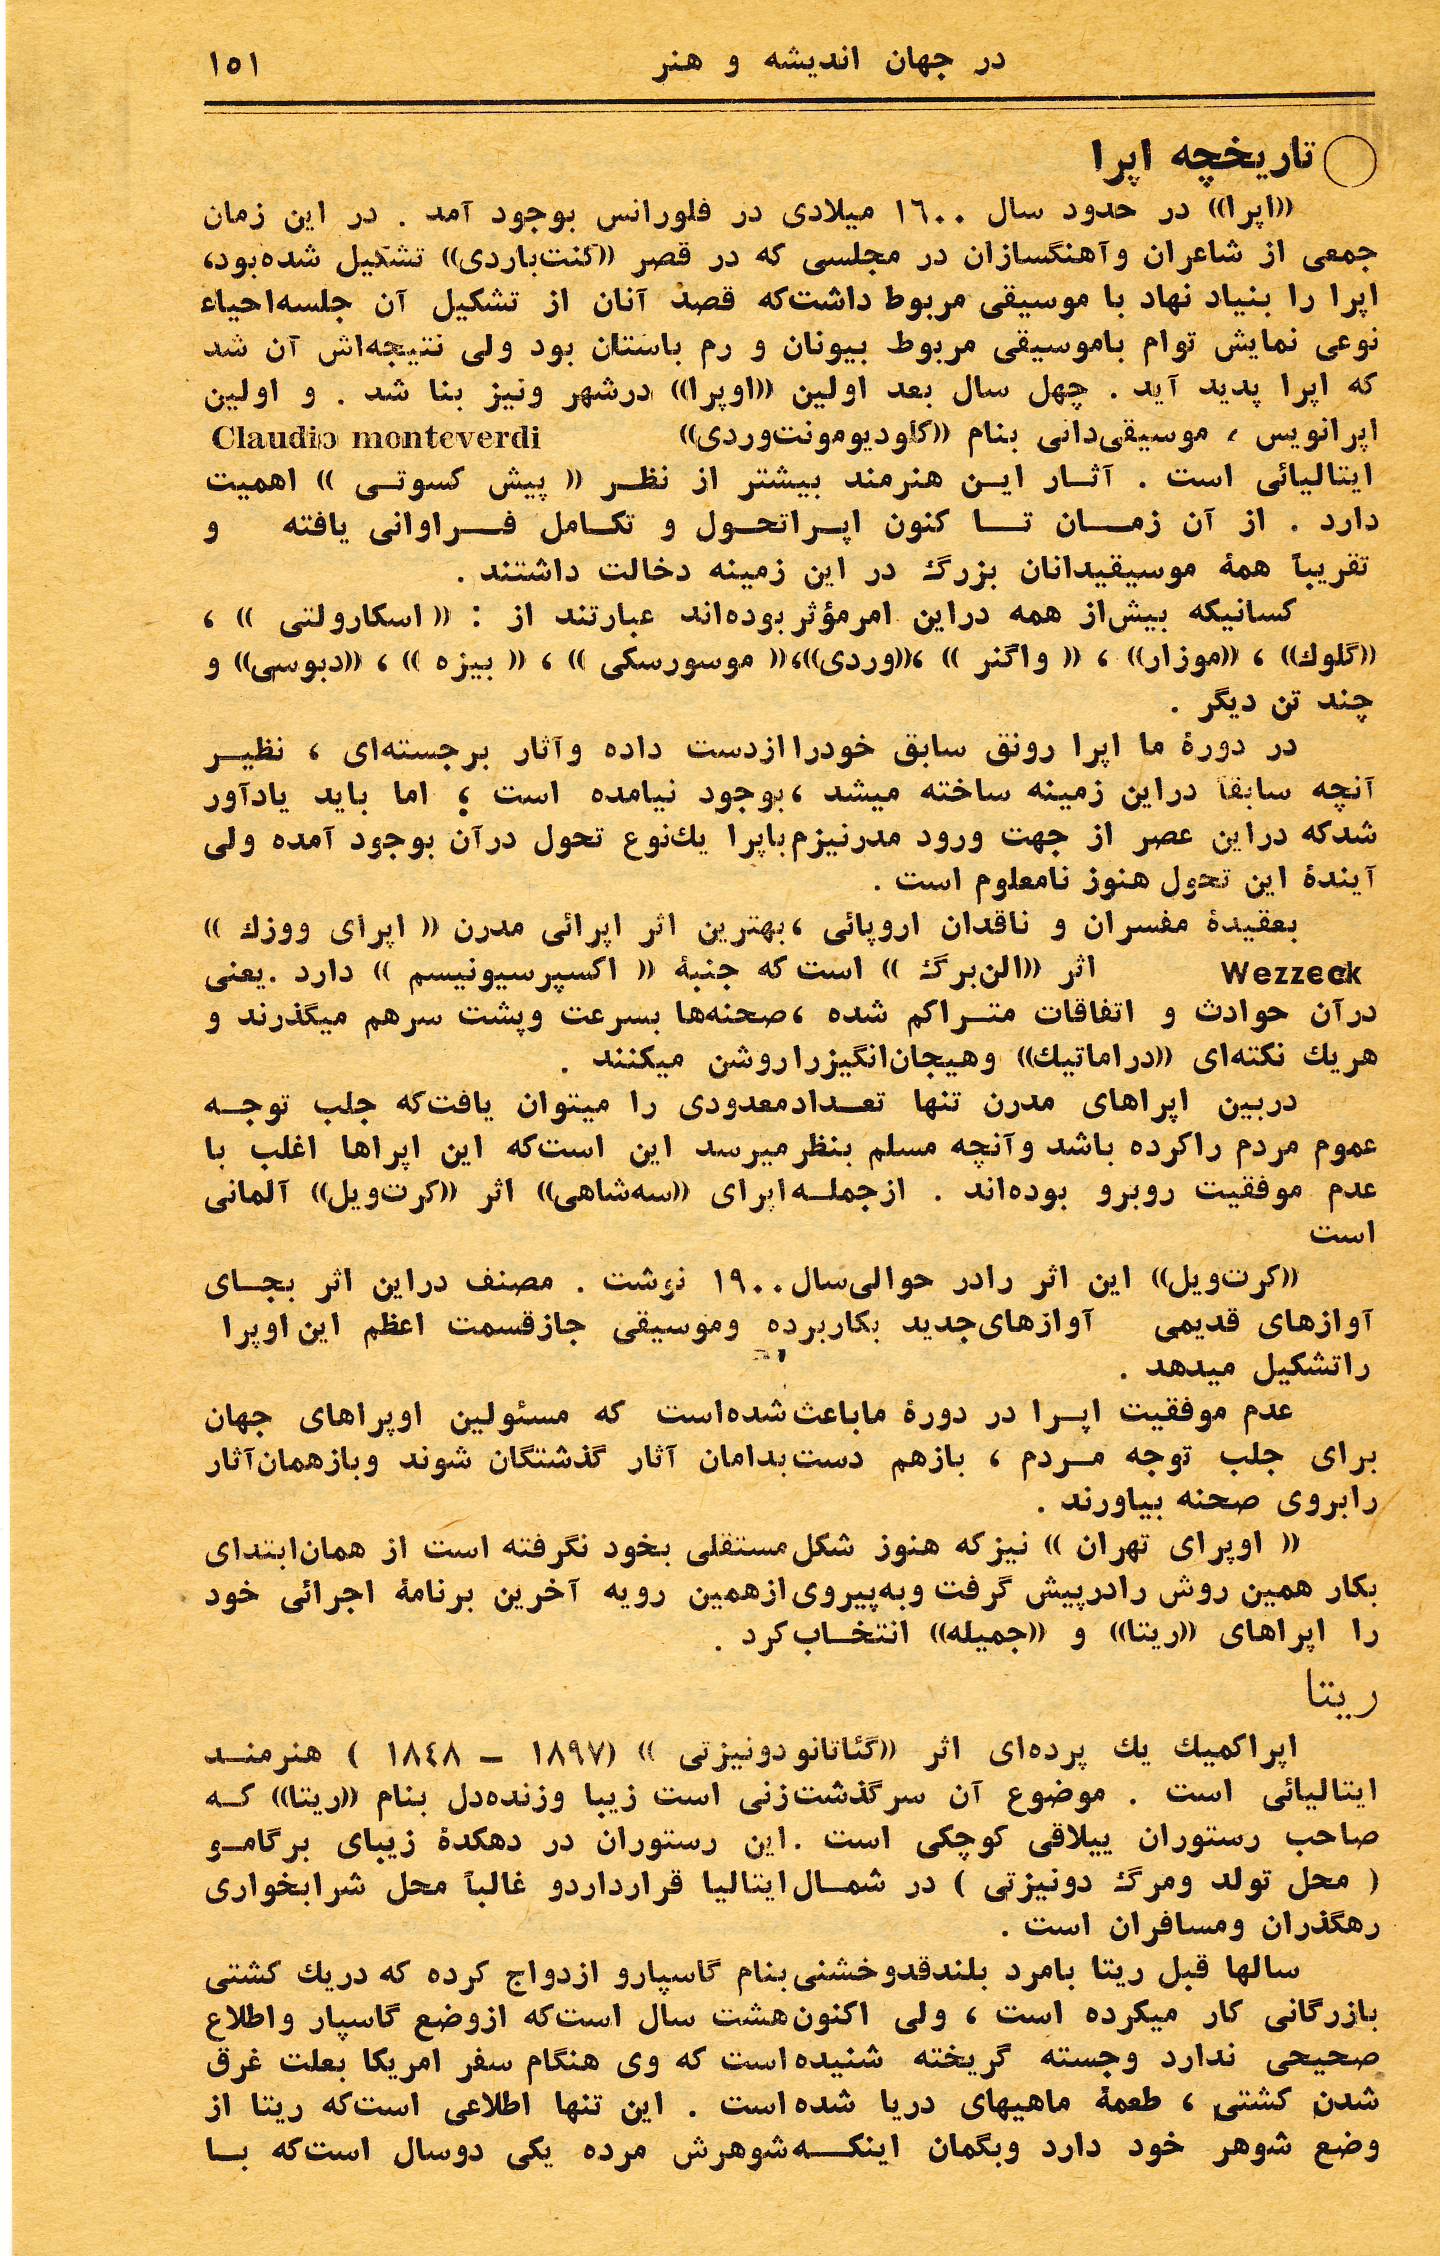 در جهان اندیشه و هنر ۱۵۱
تاریخچه اپرا
((اپرا)) در حدود سال ۱۶۰۰ میلادی در فلورانس بوجود آمد . در این زمان
جمعی از شاعران و آهنگسازان در مجلسی که در قصر ((کنت‌باردی)) تشکیل شده‌بود،
اپرا را بنیاد نهاد با موسیقی مربوط داشت‌که قصد آنان از تشکیل آن جلسه‌احیاء
نوعی نمایش توام باموسیقی مربوط بیونان و رم باستان بود ولی نتیجه‌اش آن شد
که اپرا پدید آید . چهل سال بعد اولین ((اوپرا)) درشهر ونیز بنا شد . و اولین
اپرانویس ، موسیقی‌دانی بنام ((کلودیومونت‌وردی)) Claudio monteverdi
ایتالیائی است . آثار این هنرمند بیشتر از نظر (( پیش کسوتی )) اهمیت
دارد . از آن زمان تا کنون اپراتحول و تکامل فراوانی یافته و
تقریباً همهٔ موسیقیدانان بزرگ در این زمینه دخالت داشتند .
کسانیکه بیش‌از همه دراین امرمؤثر بوده‌اند عبارتند از : (( اسکارولتی )) ،
((گلوك)) ، ((موزار)) ، (( واگنر )) ،((وردی))،(( موسورسکی )) ، (( بیزه )) ، ((دبوسی)) و
چند تن دیگر .
در دورهٔ ما اپرا رونق سابق خودرا ازدست داده و آثار برجسته‌ای ، نظیر
آنچه سابقاً دراین زمینه ساخته میشد ، بوجود نیامده است ؛ اما باید یادآور
شدکه دراین عصر از جهت ورود مدرنیزم باپرا یك‌نوع تحول درآن بوجود آمده ولی
آیندهٔ این تحول هنوز نامعلوم است .
بعقیدهٔ مفسران و ناقدان اروپائی ، بهترین اثر اپرائی مدرن (( اپرای ووزك ))
Wezzeck اثر ((الن‌برگ )) است که جنبهٔ (( اکسپرسیونیسم )) دارد .یعنی
درآن حوادث و اتفاقات متراکم شده ، صحنه‌ها بسرعت وپشت سرهم میگذرند و
هریك نکته‌ای ((دراماتیك)) وهیجان‌انگیزرا روشن میکنند .
دربین اپراهای مدرن تنها تعدادمعدودی را میتوان یافت‌که جلب توجه
عموم مردم راکرده باشد و آنچه مسلم بنظرمیرسد این است‌که این اپراها اغلب با
عدم موفقیت روبرو بوده‌اند . ازجمله‌اپرای ((سه‌شاهی)) اثر ((کرت‌ویل)) آلمانی
است
((کرت‌ویل)) این اثر رادر حوالی‌سال ۱۹۰۰ نوشت . مصنف دراین اثر بجای
آوازهای قدیمی آوازهای‌جدید بکاربرده وموسیقی جازقسمت اعظم این اوپرا
راتشکیل میدهد .
عدم موفقیت اپرا در دورهٔ ماباعث شده‌است که مسئولین اوپراهای جهان
برای جلب توجه مردم ، بازهم دست بدامان آثار گذشتگان شوند وبازهمان‌آثار
رابروی صحنه بیاورند .
(( اوپرای تهران )) نیزکه هنوز شکل مستقلی بخود نگرفته است از همان‌ابتدای
بکار همین روش رادرپیش گرفت وبه‌پیروی ازهمین رویه آخرین برنامهٔ اجرائی خود
را اپراهای ((ریتا)) و ((جمیله)) انتخاب‌کرد .
ریتا
اپراکمیك یك پرده‌ای اثر ((گئاتانودونیزتی )) (۱۸۹۷ – ۱۸۴۸ ) هنرمند
ایتالیائی است . موضوع آن سرگذشت زنی است زیبا وزنده‌دل بنام ((ریتا)) که
صاحب رستوران ییلاقی کوچکی است . این رستوران در دهکدهٔ زیبای برگامو
( محل تولد ومرگ دونیزتی ) در شمال ایتالیا قرارداردو غالباً محل شرابخواری
رهگذران ومسافران است .
سالها قبل ریتا بامرد بلندقدوخشنی بنام گاسپارو ازدواج کرده که دریك کشتی
بازرگانی کار میکرده است ، ولی اکنون هشت سال است‌که ازوضع گاسپار واطلاع
صحیحی ندارد وجسته گریخته شنیده است که وی هنگام سفر امریکا بعلت غرق
شدن کشتی ، طعمهٔ ماهیهای دریا شده است . این تنها اطلاعی است‌که ریتا از
وضع شوهر خود دارد وبگمان اینکه شوهرش مرده یکی دوسال است‌که با